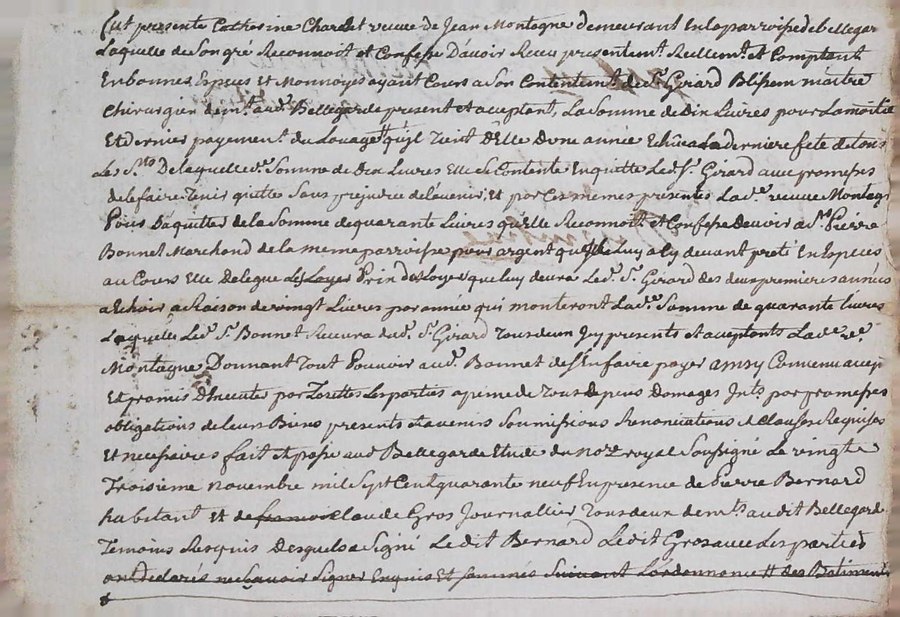 fut presente Catherine Chardet veuve de Jean Montagne demeurant en la parroisse de bellegar
Laquelle de Son gré Reconnoit et Confesse D'avoir Receu presentemt. Reellemt. et Comptant
En bonnes Especes Et Monnoyes ayant Cours a Son Contentemt. de Sr. Girard maitre
chirurgien demt. aud. Bellegarde present et acceptant, La Somme de Dix Livres pour La moitie
Et dernier payement du Louage qu'jl tient d'Elle d'une année Echüe a La derniere fete de tous
Les Sts. De laquelle de. Somme de Dix Livres Elle Se Contente En quitte Led. Sr. Girard avec promesses
de le faire tenir quitte Sans prejudice de l'avenir, et par Ces memes presentes La de. veuve Montagn
Pour S'aquitter de la Somme de quarante Livres qu'elle Reconnoit et Confesse devoir a Sr. Pierre
Bonnet Marchand de la meme parroisse pour argent qu'jl Luy a Cy devant preté En Especes
au Cours Elle Delegue Le Loyer Prix du Loyer que luy devra Led. Sr. Girard des deux premieres années
a Echoir a Raison de vingt Livres par année qui monteront La de. Somme de quarante Livres
Laquelle Led. Sr. Bonnet Recevra dud. Sr. Girard tous deux Jcy presents et acceptants La de. ve.
Montagne Donnant tout Pouvoir aud. Bonnet de S'En faire payer ainsy Convenu accep
Et promis D'Executer par Toutes Les parties a peine de tous depens Domages Jnts. par promesses
obligations de leurs Biens presents et avenirs Soumissions Renonciations et Clauses Requises
Et necessaires fait et passé aud Bellegarde Etude du nore. royal Soussigné Le vingt
Troisieme novembre mil Sept Cent quarante neuf En presence de Pierre Bernard
habitant et de francois Claude Gros Journallier tous deux demts. audit Bellegarde
Temoins Requis Desquels a Signé Ledit Bernard Ledit Gros avec Les parties
ont Declarés ne Sçavoir Signer Enquis Et Sommés Suivant L'ordonnance des Batiments